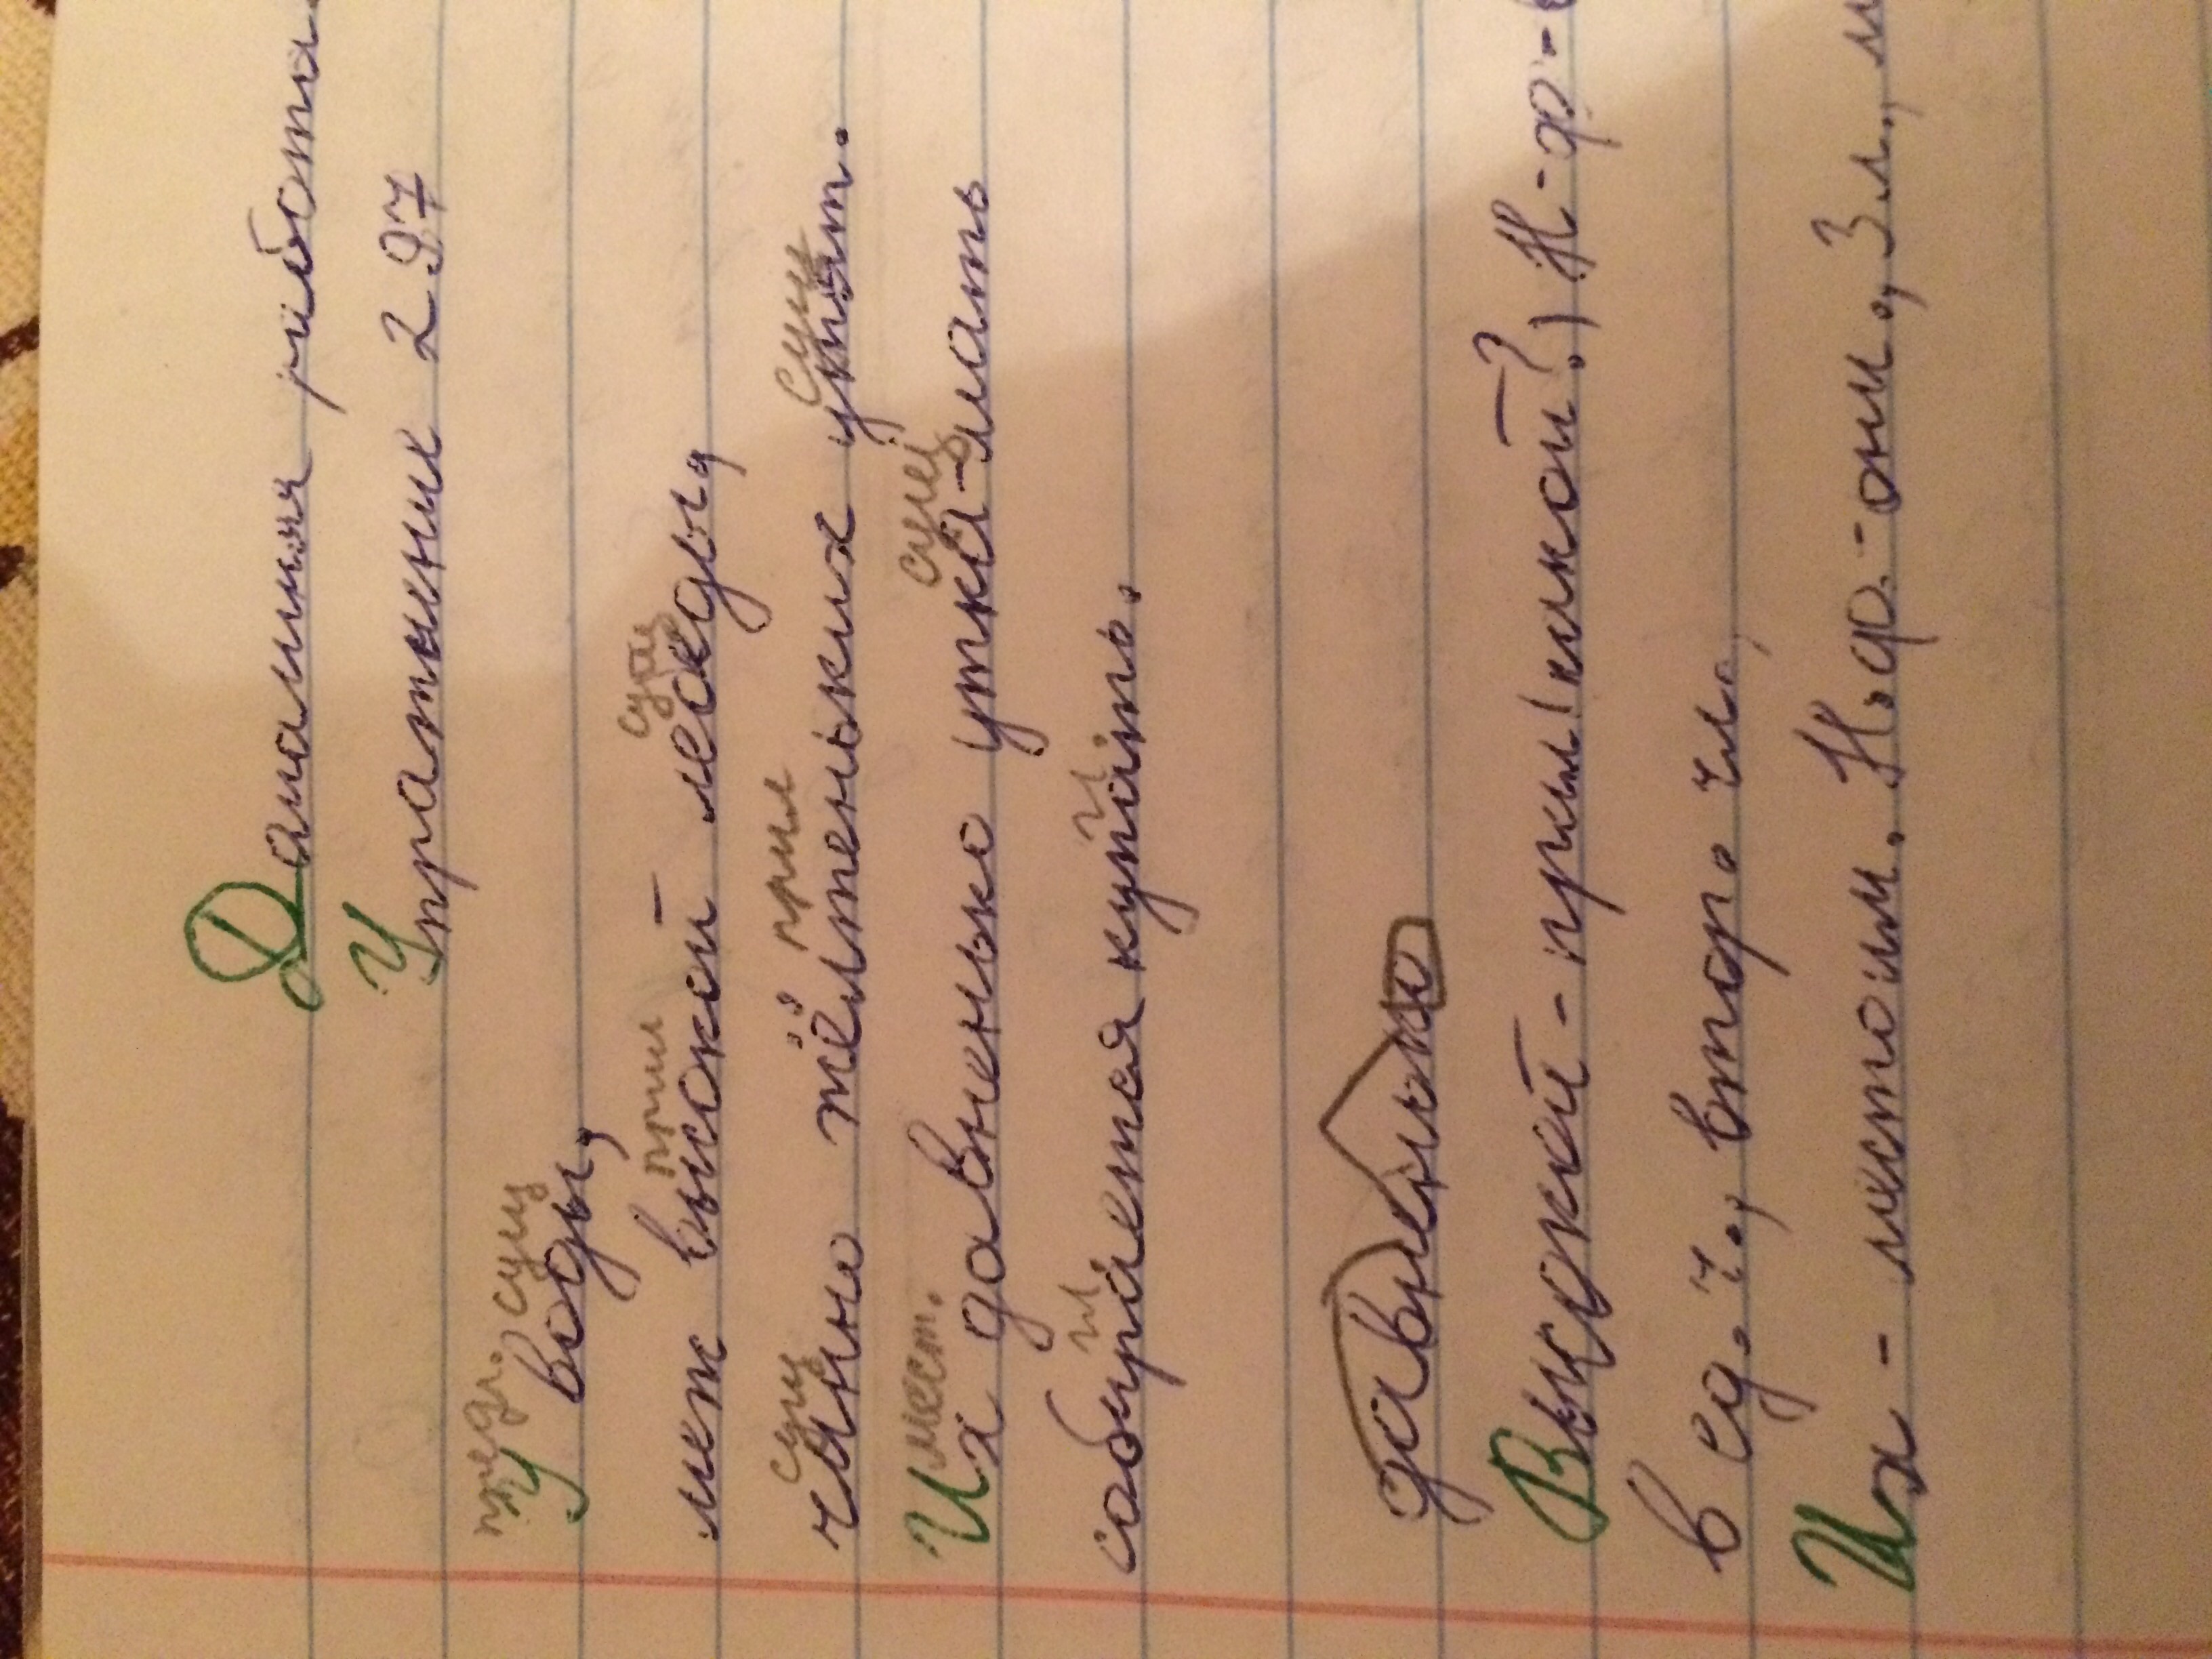 Домашняя работа.
Упражнение 297
предл. сущ
У воды,
прил сущ
меж высокой лебеды,
сущ прил сущ
чинно жёлтеньких утят.
мест. сущ
Их давненько утка-мать
гл. гл.
собирается купать.
давненько
Высокой - прил(какой?) Н-ф-
в ед.ч., втор
Их - местоим. Н.ф.-они, 3л., м